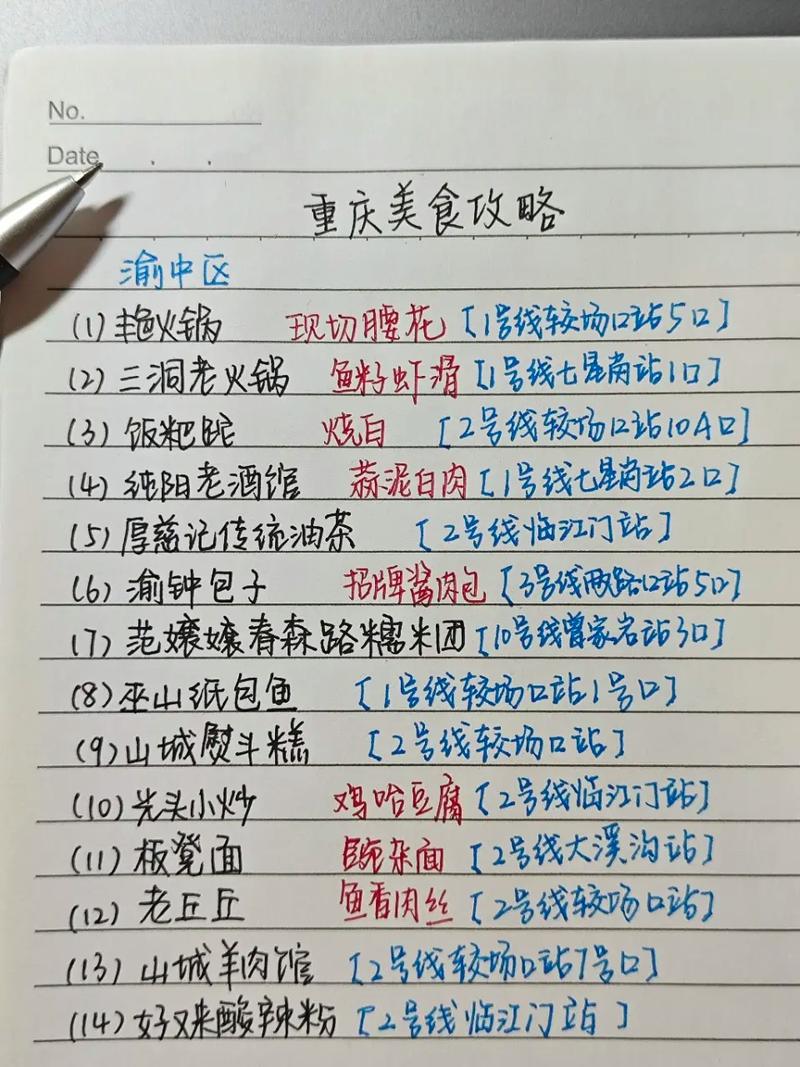 No.
Date
重庆美食攻略
渝中区
(1) 艳火锅 现切腰花 [1号线较场口站5口]
(2) 三洞老火锅 鱼籽虾滑 [1号线七星岗站1口]
(3) 饭粑砣 烧白 [2号线较场口站10A口]
(4) 纯阳老酒馆 蒜泥白肉 [1号线七星岗站2口]
(5) 厚慈记传统油茶 [2号线临江门站]
(6) 渝钟包子 招牌酱肉包 [3号线两路口站5口]
(7) 范孃孃春森路糯米团 [10号线曾家岩站3口]
(8) 巫山纸包鱼 [1号线较场口站1号口]
(9) 山城熨斗糕 [2号线较场口站]
(10) 光头小炒 鸡哈豆腐 [2号线临江门站]
(11) 板凳面 豌杂面 [2号线大溪沟站]
(12) 老丘丘 鱼香肉丝 [2号线较场口站]
(13) 山城羊肉馆 [2号线较场口站7号口]
(14) 好又来酸辣粉 [2号线临江门站]